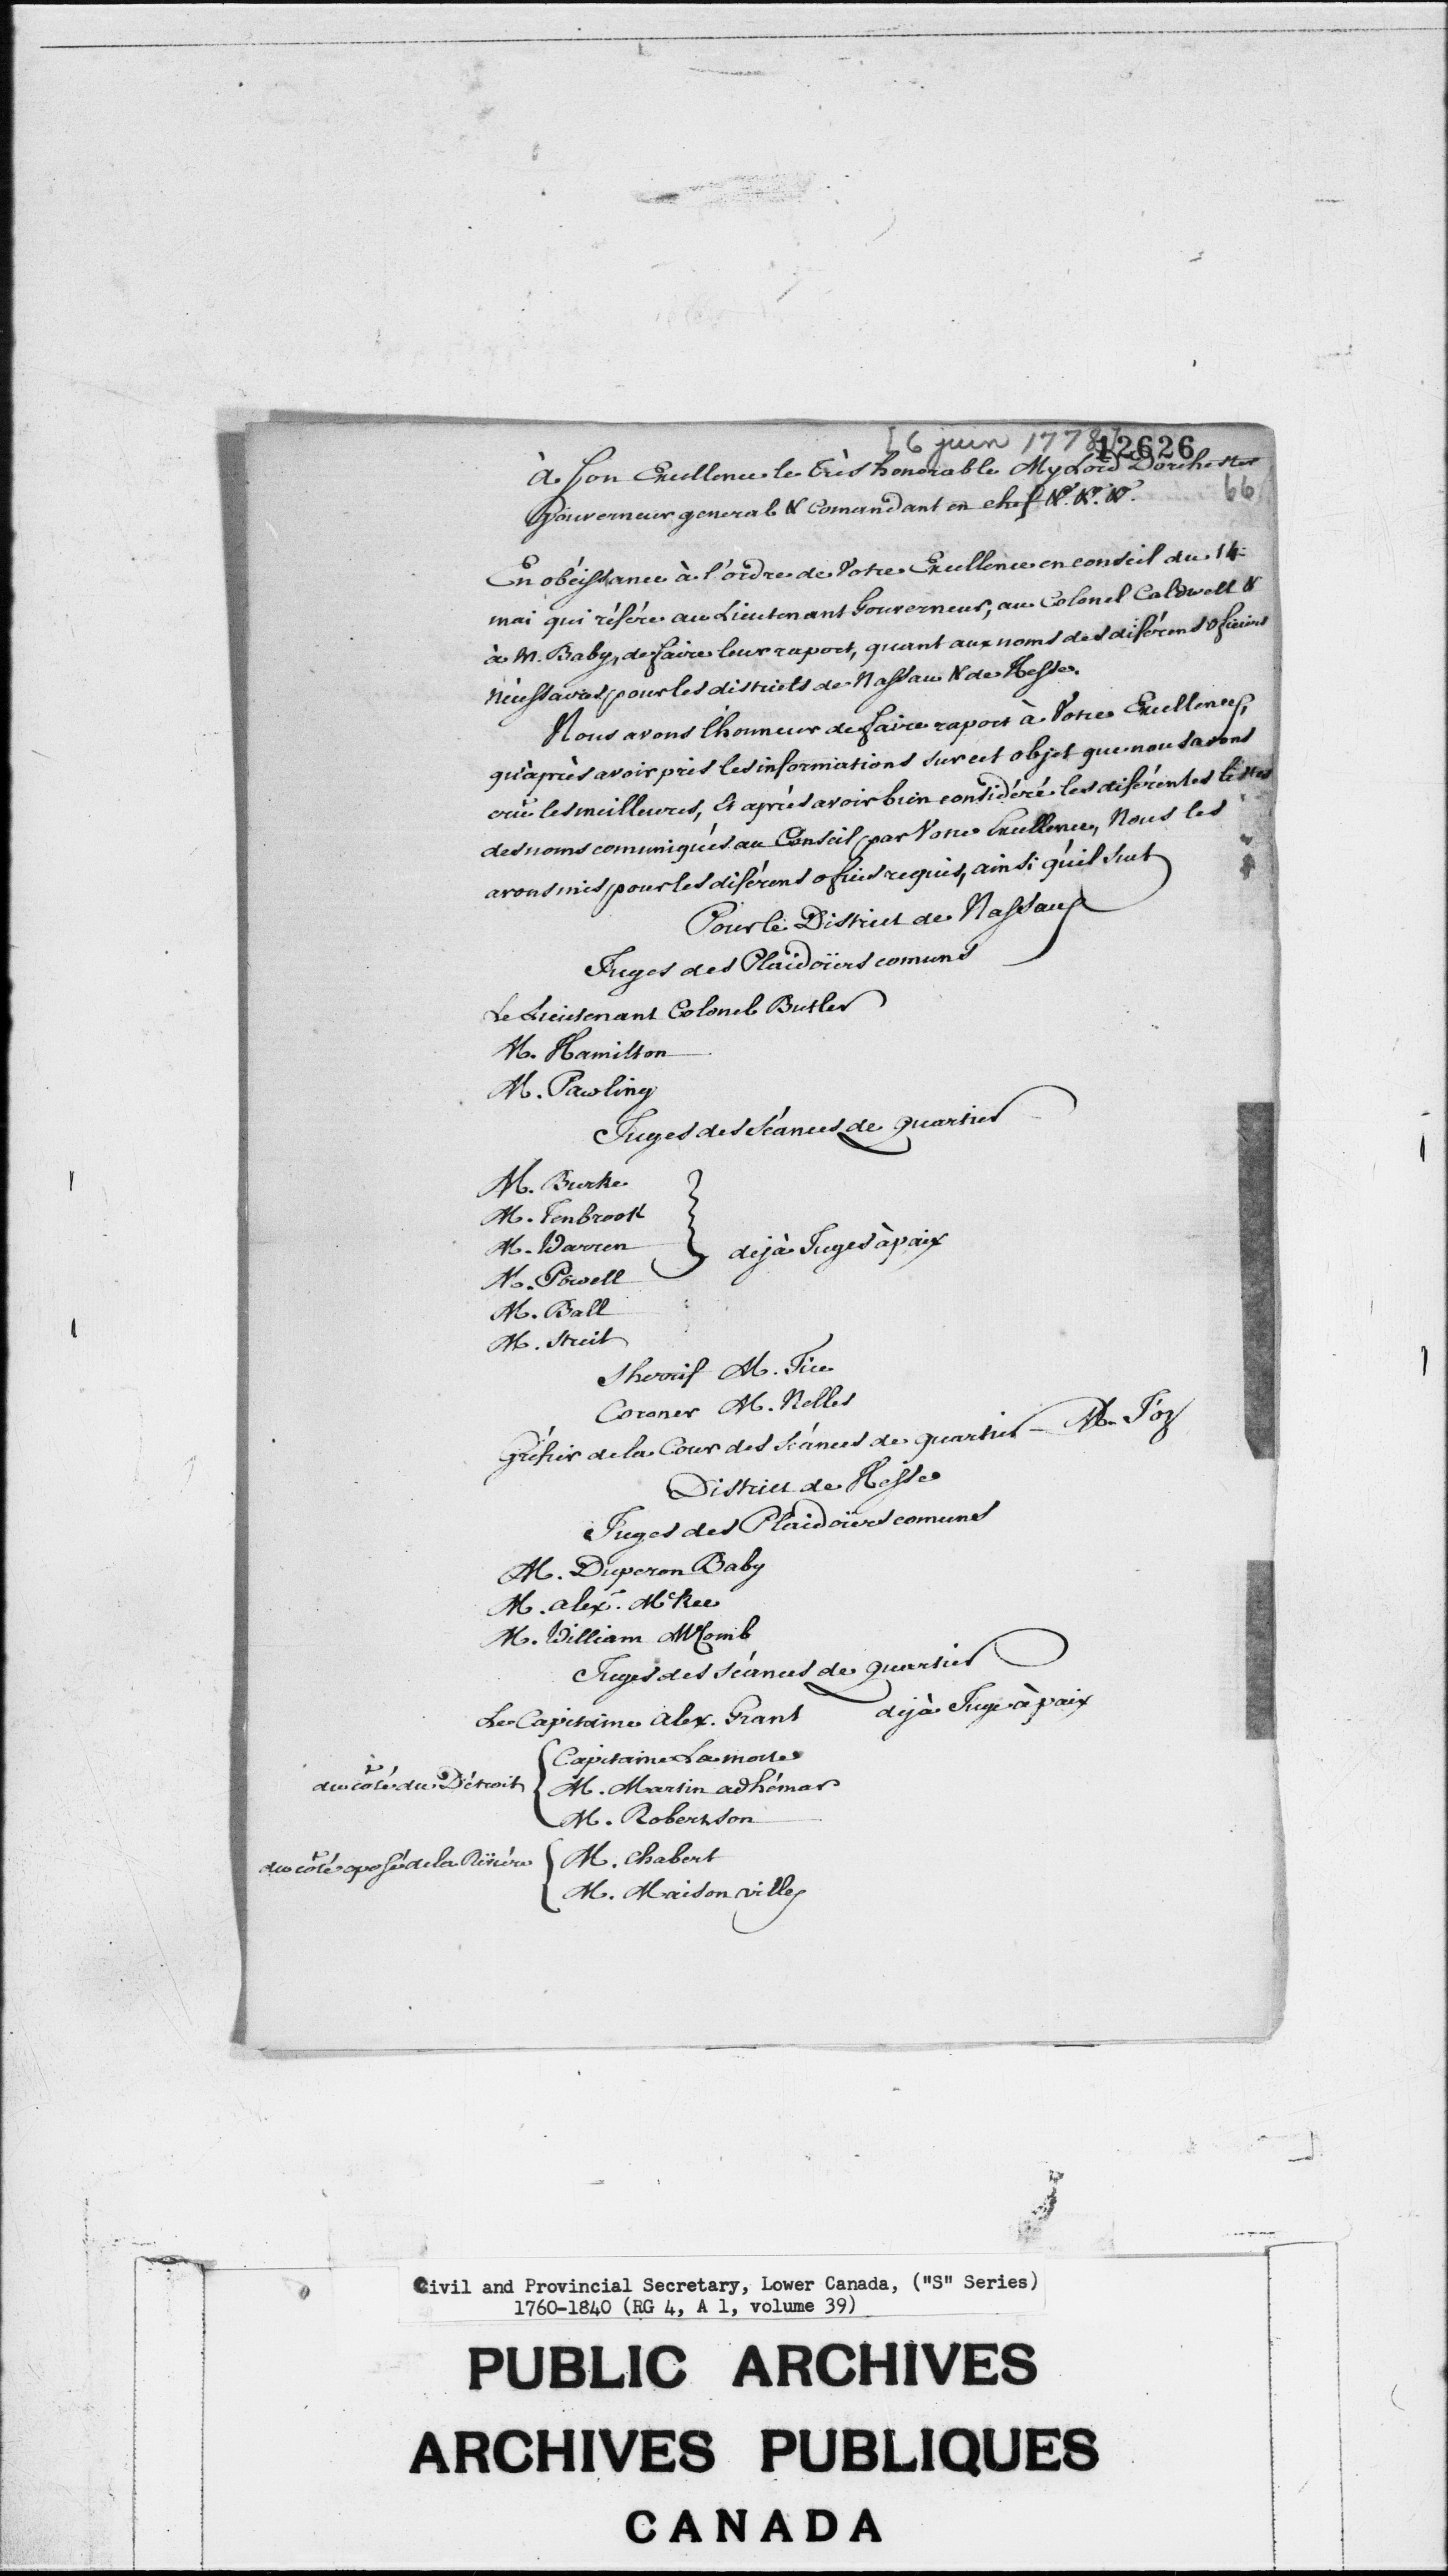 [6 juin 1778]
12626
66
à Son Excellence le très honorable My Lord Dorchester
Gouverneur general & Comandant en chef &c. &c. &c.
En obéissance à l'ordre de Votre Excellence en conseil du 14
mai qui réfère au Lieutenant Gouverneur, au Colonel Caldwell &
à M. Baby, de faire leur raport, quant aux noms des diférens oficiers
nécessaires pour les districts de Nassau & de Hesse.
Nous avons l'honneur de faire raport à Votre Excellence,
qu'après avoir pris les informations sur cet objet que nous avons
crû les meilleures, et après avoir bien considéré les diférentes listes
des noms comuniqués au Conseil par Votre Excellence, Nous les
avons mis pour les diférens ofices requis, ainsi qu'il suit
Pour le District de Nassau
Juges des Plaidoïers comuns
Le Lieutenant Colonel Butler
M. Hamilton
M. Pawling
Juges des Séances de quartier
M. Burke
M. Tenbrook
M. Warren
M. Powell
déjà Juges à paix
M. Ball
M. Struit
Sherrif M. Tice
Coroner M. Nelles
Gréfier de la Cour des Séances de quartier – M. Foz
District de Hesse
Juges des Plaidoïers comuns
M. Duperon Baby
M. alexr. McKee
M. William McComb
Juges des Séances de quartier
Le Capitaine alex. Grant déjà Juge à paix
du côté du Détroit
Capitaine Lamotte
M. Martin adhémar
M. Robertson
du côté oposé de la Rivière
M. Chabert
M. Maisonville
Civil and Provincial Secretary, Lower Canada, ("S" Series)
1760-1840 (RG 4, A 1, volume 39)
PUBLIC ARCHIVES
ARCHIVES PUBLIQUES
CANADA